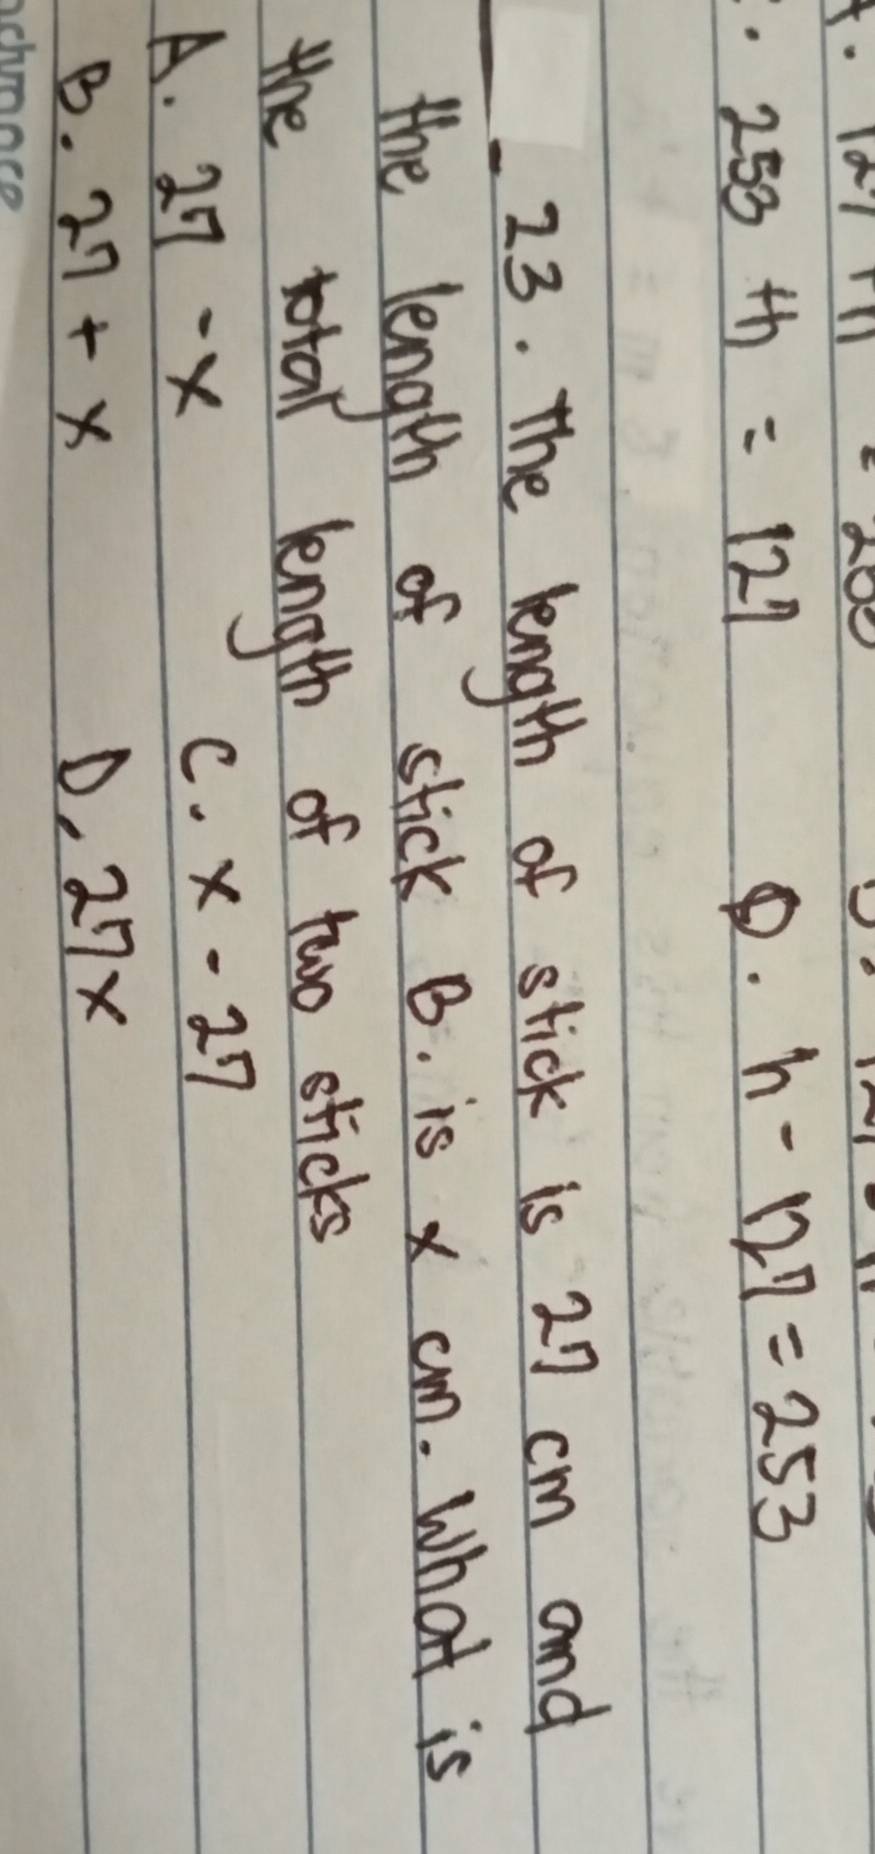 253 + h = 127 D. h - 127 = 253
23. The length of stick is 27 cm and
the length of stick B. is x cm. What is
the total length of two sticks
A. 27 - x C. x - 27
B. 27 + x D. 27x